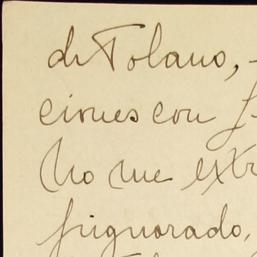 de Tolano,
ciones con
No me extr
pignorado,